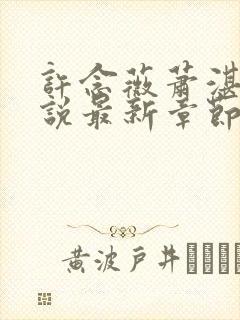 許念薇蕭湛
說最新章節
黃波戶井